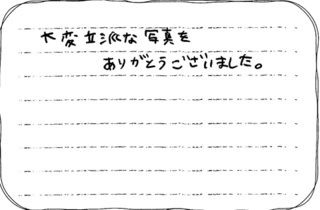 大変立派な写真を
ありがとうございました。